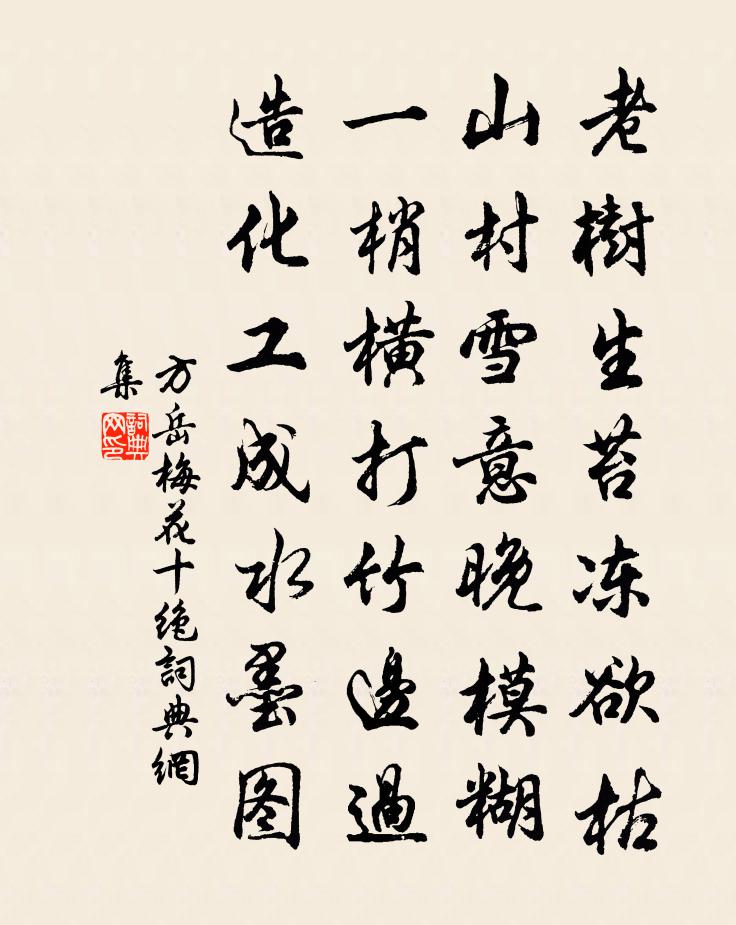 老樹生苔冻欲枯
山村雪意晚模糊
一梢橫打竹邊過
造化工成水墨图
方岳梅花十绝詞典網
集
詞典
网印